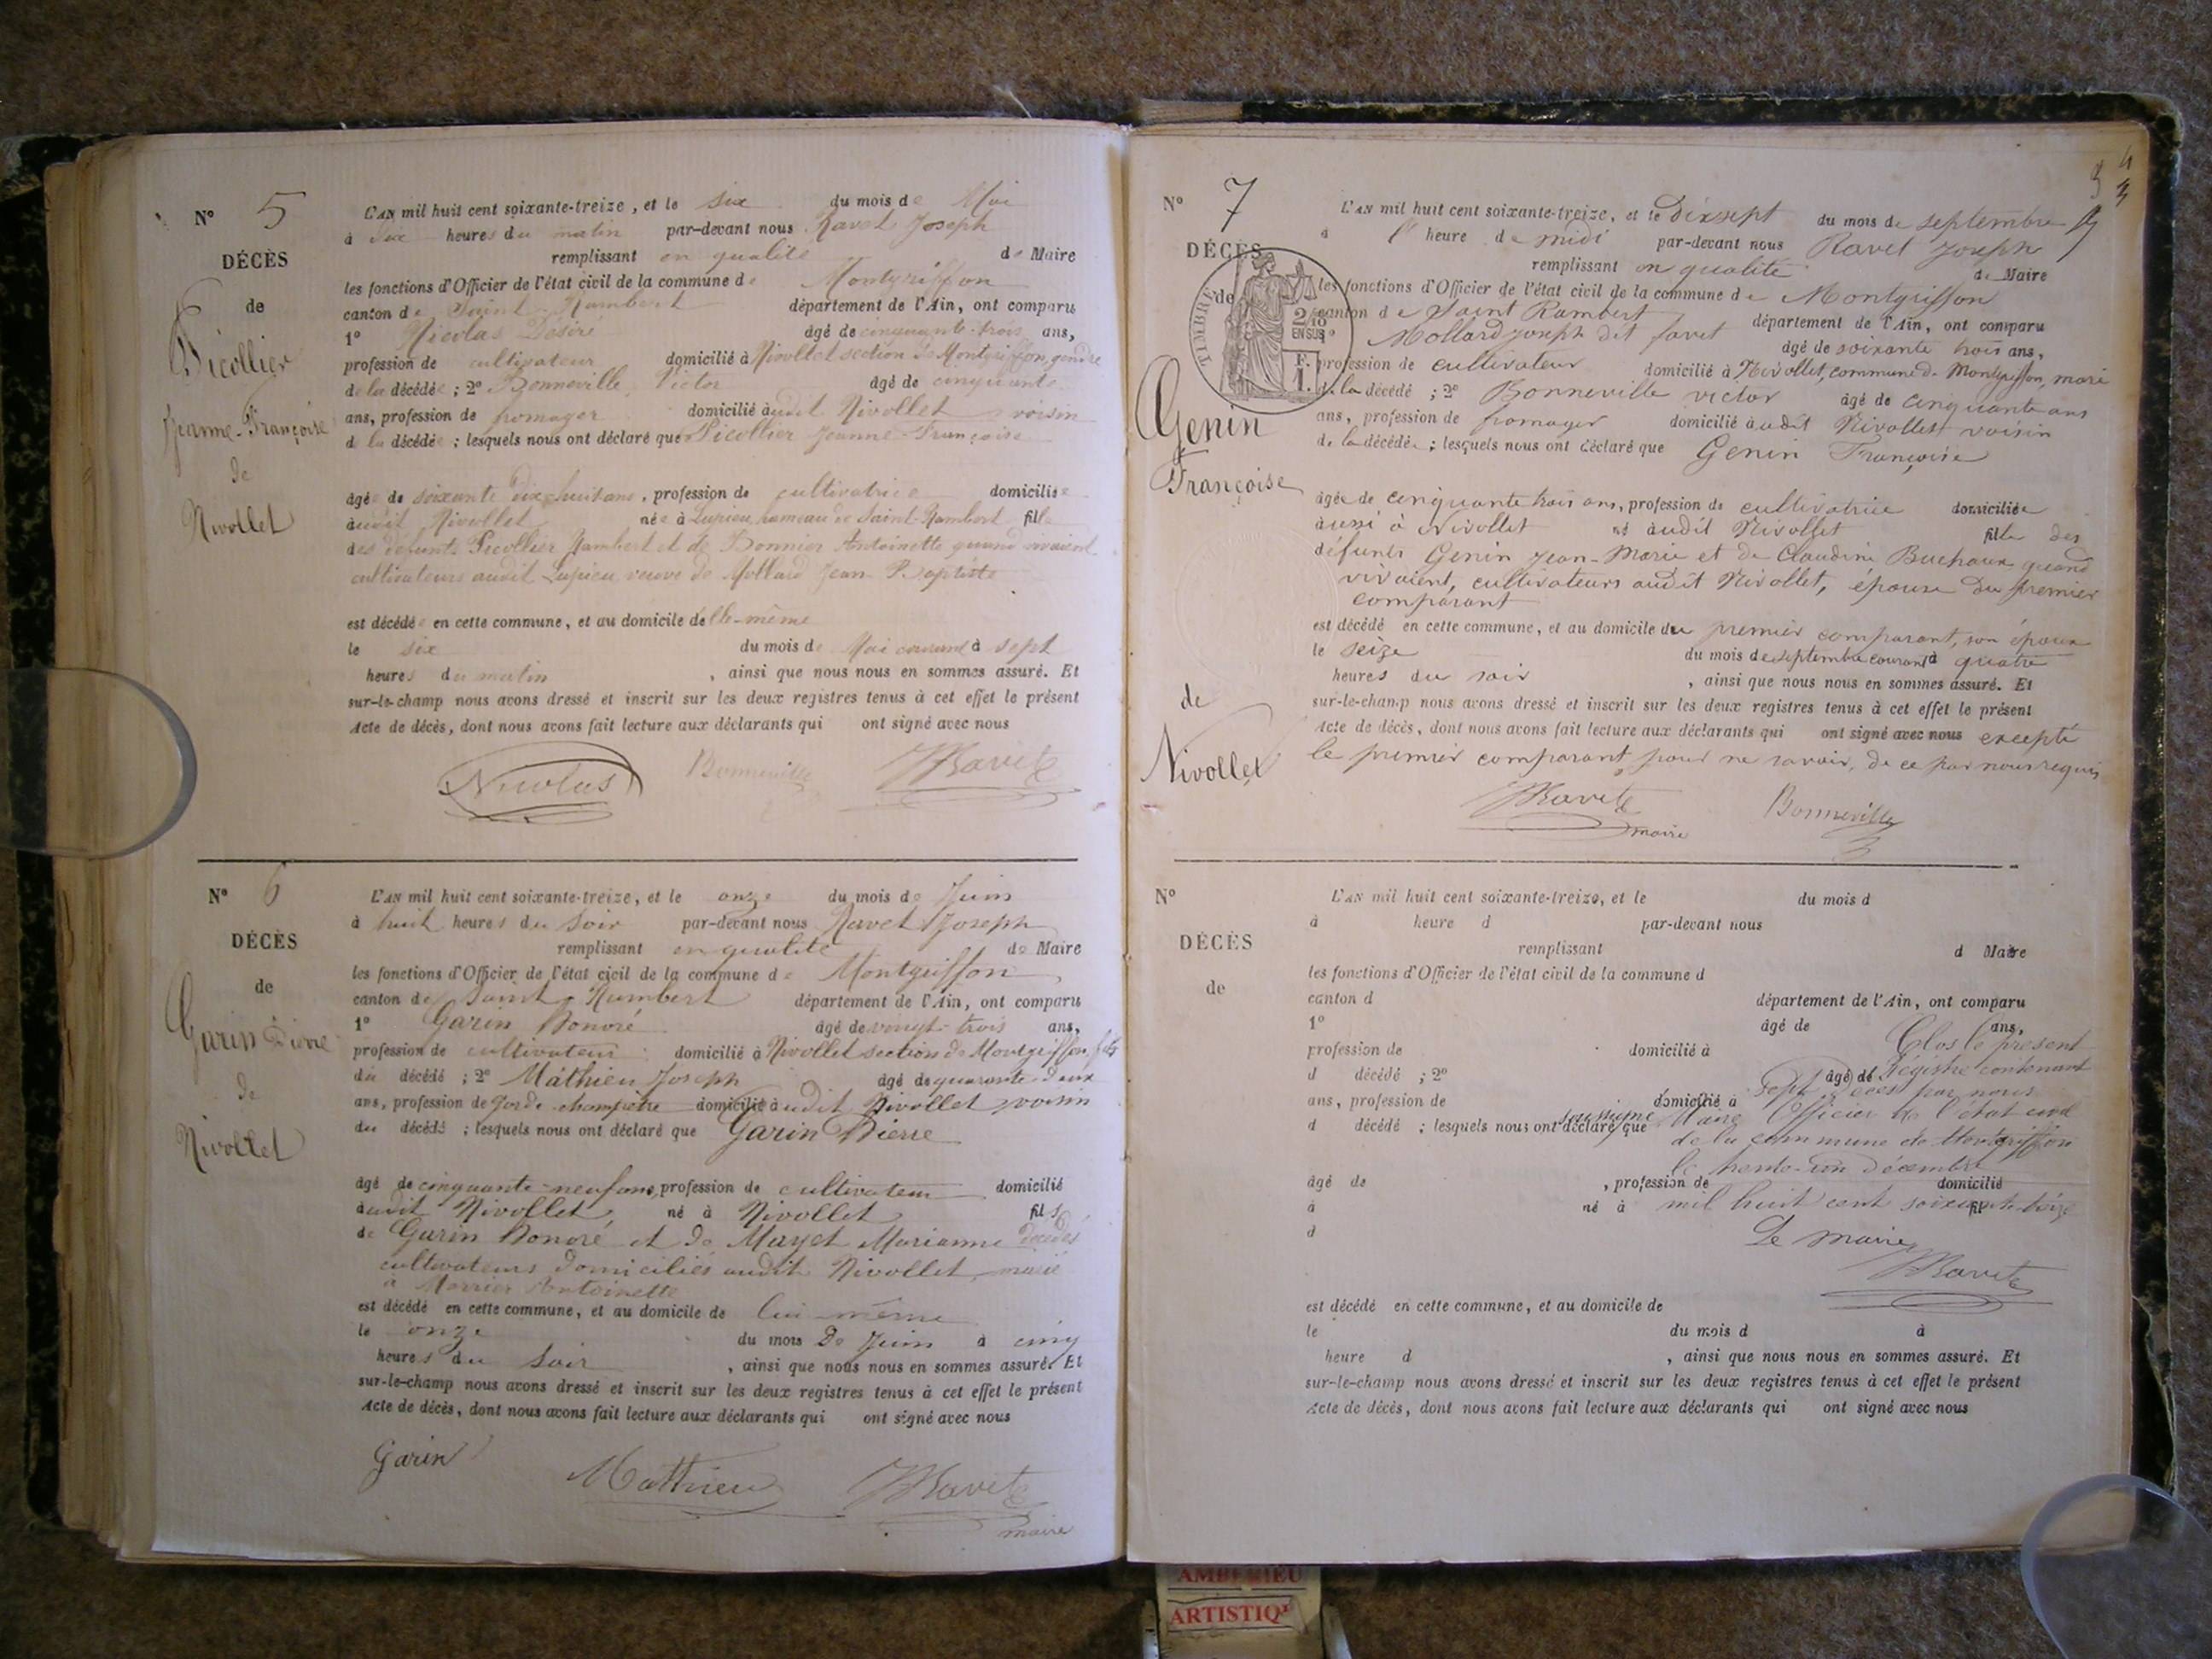 N° 5
DÉCÈS
de
Picollier
Jeanne-Françoise
de
Nivollet
L'AN mil huit cent soixante-treize, et le six du mois de Mai
à dix heures du matin par-devant nous Ravet Joseph
remplissant en qualité de Maire
les fonctions d'Officier de l'état civil de la commune de Montgriffon
canton de Saint Rambert département de l'Ain, ont comparu
1° Nicolas Désiré âgé de cinquante-trois ans,
profession de cultivateur domicilié à Nivollet section de Montgriffon, gendre
de la décédée ; 2° Bonneville Victor âgé de cinquante
ans, profession de fromager domicilié audit Nivollet voisin
de la décédée ; lesquels nous ont déclaré que Picollier Jeanne-Françoise
âgée de soixante dix-huit ans, profession de cultivatrice domiciliée
audit Nivollet née à Lupieu hameau de Saint-Rambert fille
des défunts Picollier Rambert et de Bonnier Antoinette quand vivaient
cultivateurs audit Lupieu, veuve de Mollard Jean-Baptiste
est décédée en cette commune, et au domicile d'elle-même
le six du mois de Mai courant à sept
heures du matin, ainsi que nous nous en sommes assuré. Et
sur-le-champ nous avons dressé et inscrit sur les deux registres tenus à cet effet le présent
Acte de décès, dont nous avons fait lecture aux déclarants qui ont signé avec nous
Nicolas Bonneville JRavet
N° 6
DÉCÈS
de
Garin Pierre
de
Nivollet
L'AN mil huit cent soixante-treize, et le onze du mois de Juin
à huit heures du soir par-devant nous Ravet Joseph
remplissant en qualité de Maire
les fonctions d'Officier de l'état civil de la commune de Montgriffon
canton de Saint-Rambert département de l'Ain, ont comparu
1° Garin Honoré âgé de vingt-trois ans,
profession de cultivateur domicilié à Nivollet section de Montgriffon, fils
du décédé ; 2° Mathieu Joseph âgé de quarante deux
ans, profession de garde-champêtre domicilié audit Nivollet voisin
du décédé ; lesquels nous ont déclaré que Garin Pierre
âgé de cinquante-neuf ans, profession de cultivateur domicilié
audit Nivollet né à Nivollet fils
de Garin Honoré et de Mayet Marianne décédés
cultivateurs domiciliés audit Nivollet, marié
à Antoinette
est décédé en cette commune, et au domicile de lui-même
le onze du mois de Juin à cinq
heures du soir, ainsi que nous nous en sommes assuré. Et
sur-le-champ nous avons dressé et inscrit sur les deux registres tenus à cet effet le présent
Acte de décès, dont nous avons fait lecture aux déclarants qui ont signé avec nous
Garin Mathieu JRavet
maire
N° 7
DÉCÈS
de
TIMBRE
2/10
EN SUS
Genin
Françoise
de
Nivollet
L'AN mil huit cent soixante-treize, et le dix sept du mois de septembre
à heure de midi par-devant nous Ravet Joseph
remplissant en qualité de Maire
les fonctions d'Officier de l'état civil de la commune de Montgriffon
canton de Saint Rambert département de l'Ain, ont comparu
Mollard Joseph dit favet âgé de soixante trois ans,
profession de cultivateur domicilié à Nivollet, commune de Montgriffon, mari
de la décédé ; 2° Bonneville victor âgé de cinquante ans
ans, profession de fromager domicilié audit Nivollet voisin
de la décédée ; lesquels nous ont déclaré que Genin Françoise
âgée de cinquante trois ans, profession de cultivatrice domiciliée
aussi à Nivollet né audit Nivollet fille des
défunts Genin Jean-Marie et de Claudine Buchaux quand
vivaient, cultivateurs audit Nivollet, épouse du premier
comparant
est décédé en cette commune, et au domicile du premier comparant, son époux
le seize du mois de septembre courant à quatre
heures du soir, ainsi que nous nous en sommes assuré. Et
sur-le-champ nous avons dressé et inscrit sur les deux registres tenus à cet effet le présent
Acte de décès, dont nous avons fait lecture aux déclarants qui ont signé avec nous excepté
le premier comparant pour ne savoir, de ce par nous requis
JRavet Bonneville
maire
N°
DÉCÈS
de
L'AN mil huit cent soixante-treize, et le du mois d
à heure d par-devant nous
remplissant d Maire
les fonctions d'Officier de l'état civil de la commune d
canton d département de l'Ain, ont comparu
1° âgé de ans,
profession de domicilié à
d décédé ; 2° âgé de
ans, profession de domicilié à
d décédé ; lesquels nous ont déclaré que
Clos le présent
Régistre contenant
sept décès par nous
soussigné Maire Officier de l'état civil
de la commune de Montgriffon
le trente-un décembre
mil huit cent soixante treize
Le maire
JRavet
âgé de , profession de domicilié
à né à fil
d
est décédé en cette commune, et au domicile de
le du mois d à
heure d , ainsi que nous nous en sommes assuré. Et
sur-le-champ nous avons dressé et inscrit sur les deux registres tenus à cet effet le présent
Acte de décès, dont nous avons fait lecture aux déclarants qui ont signé avec nous
AMBERIEU
ARTISTIQ